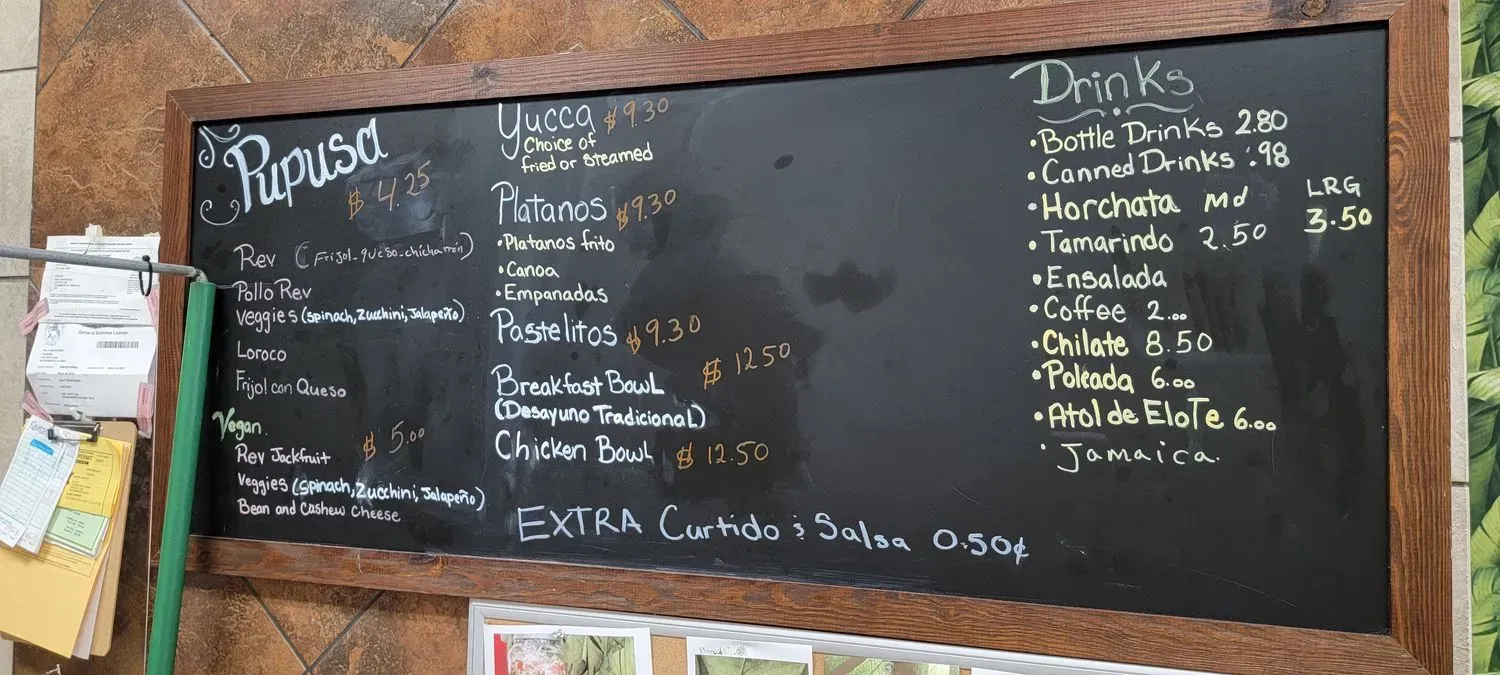 Pupusa
$ 4.25
Rev (Frijol-queso-chicharrón)
Pollo Rev
Veggies (Spinach, Zucchini, Jalapeño)
Loroco
Frijol con Queso
Vegan
$ 5.00
Rev Jackfruit
Veggies (Spinach, Zucchini, Jalapeño)
Bean and Cashew Cheese
Yucca $9.30
Choice of
fried or steamed
Platanos $9.30
•Platanos frito
•Canoa
•Empanadas
Pastelitos $9.30
Breakfast Bowl $ 12.50
(Desayuno Tradicional)
Chicken Bowl $ 12.50
EXTRA Curtido & Salsa 0.50¢
Drinks
•Bottle Drinks 2.80
•Canned Drinks .98
•Horchata md LRG
•Tamarindo 2.50 3.50
•Ensalada
•Coffee 2.00
•Chilate 8.50
•Poleada 6.00
•Atol de Elote 6.00
•Jamaica.
General Business License